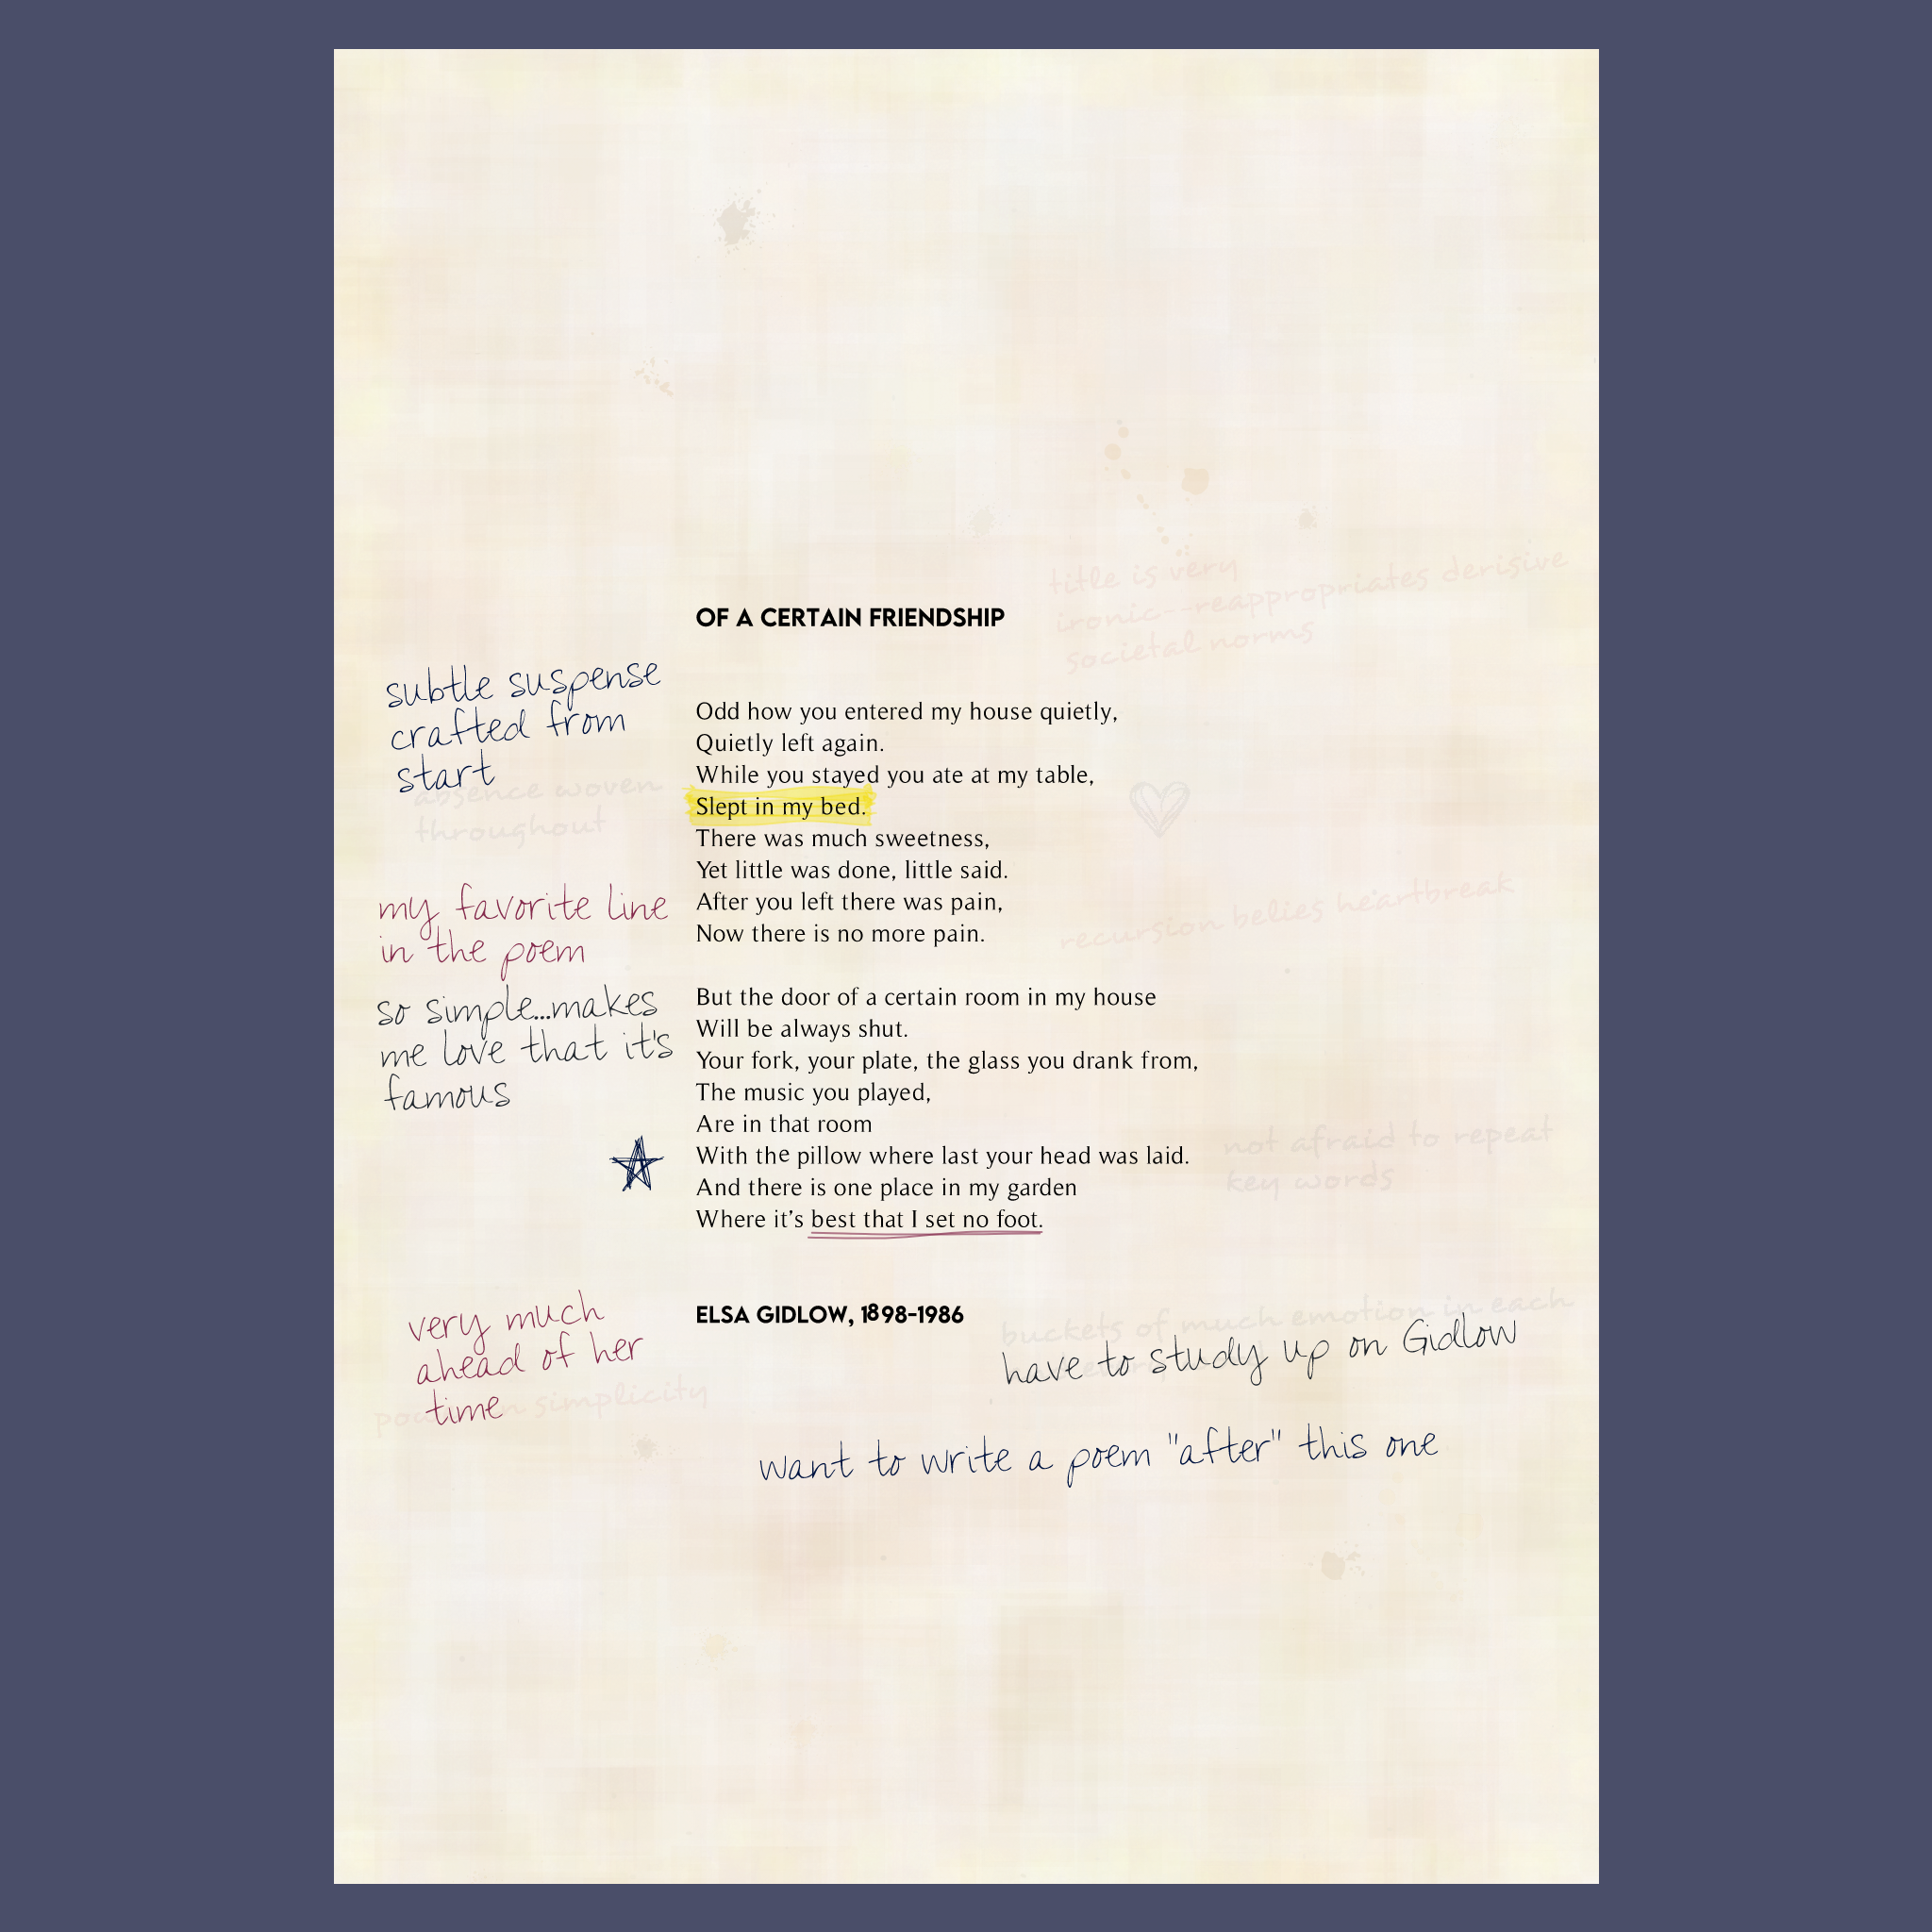 title is very
ironic--reappropriates derisive
societal norms
OF A CERTAIN FRIENDSHIP
subtle suspense
crafted from
start
absence woven
throughout
Odd how you entered my house quietly,
Quietly left again.
While you stayed you ate at my table,
Slept in my bed.
There was much sweetness,
Yet little was done, little said.
After you left there was pain,
Now there is no more pain.
my favorite line
in the poem
recursion belies heartbreak
so simple...makes
me love that it's
famous
But the door of a certain room in my house
Will be always shut.
Your fork, your plate, the glass you drank from,
The music you played,
Are in that room
With the pillow where last your head was laid.
And there is one place in my garden
Where it’s best that I set no foot.
not afraid to repeat
key words
ELSA GIDLOW, 1898-1986
very much
ahead of her
time
simplicity
buckets of much emotion in each
have to study up on Gidlow
want to write a poem "after" this one